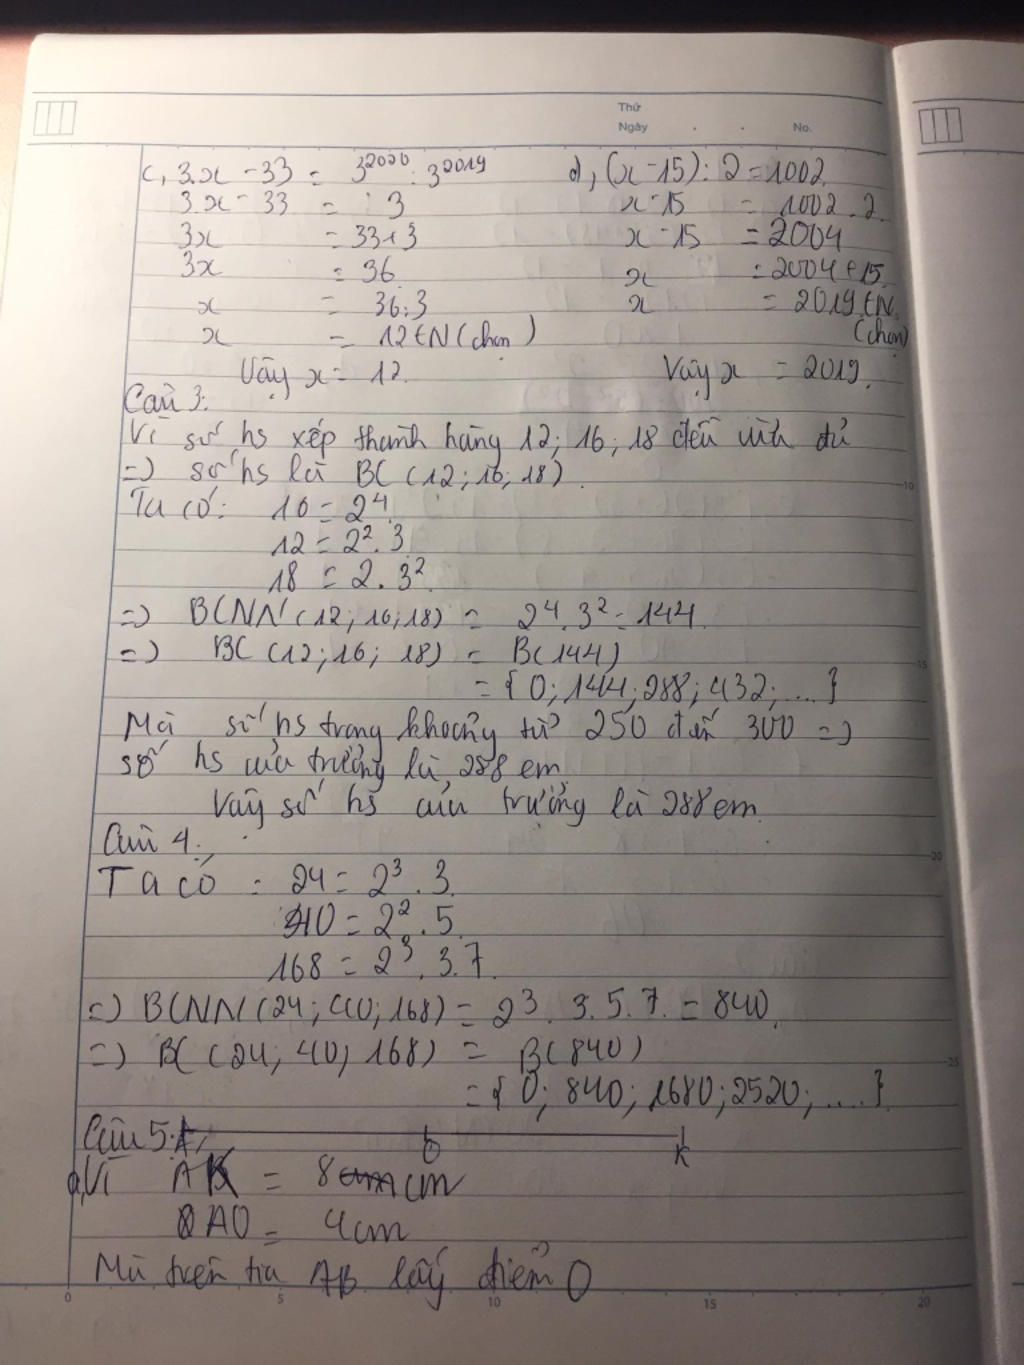 Thứ
Ngày . . No.
c, 3.x - 33 = 3^2020 : 3^2019
3.x - 33 = 3
3x = 33+3
3x = 36
x = 36:3
x = 12 ∈ N (chọn)
Vậy x = 12.
d, (x-15) : 2 = 1002
x-15 = 1002.2
x-15 = 2004
x = 2004+15
x = 2019 ∈ N
(chọn)
Vậy x = 2019.
Câu 3:
Vì số hs xếp thành hàng 12; 16; 18 đều vừa đủ
=) số hs là BC (12; 16; 18).
Ta có: 16 = 2^4
12 = 2^2.3
18 = 2.3^2
=) BCNN (12; 16; 18) = 2^4.3^2 = 144
=) BC (12; 16; 18) = B(144)
= { 0; 144; 288; 432; ... }
Mà số hs trong khoảng từ 250 đến 300 =)
số hs của trường là 288 em
Vậy số hs của trường là 288 em.
Câu 4:
Ta có: 24 = 2^3.3
40 = 2^2.5
168 = 2^3.3.7
=) BCNN (24; 40; 168) = 2^3.3.5.7 = 840
=) BC (24; 40; 168) = B(840)
= { 0; 840; 1680; 2520; .... }
Câu 5: A O K
a, Vì AK = 8 cm
AO = 4cm
Mà trên tia AB lấy điểm O
0 5 10 15 20
10
15
20
25